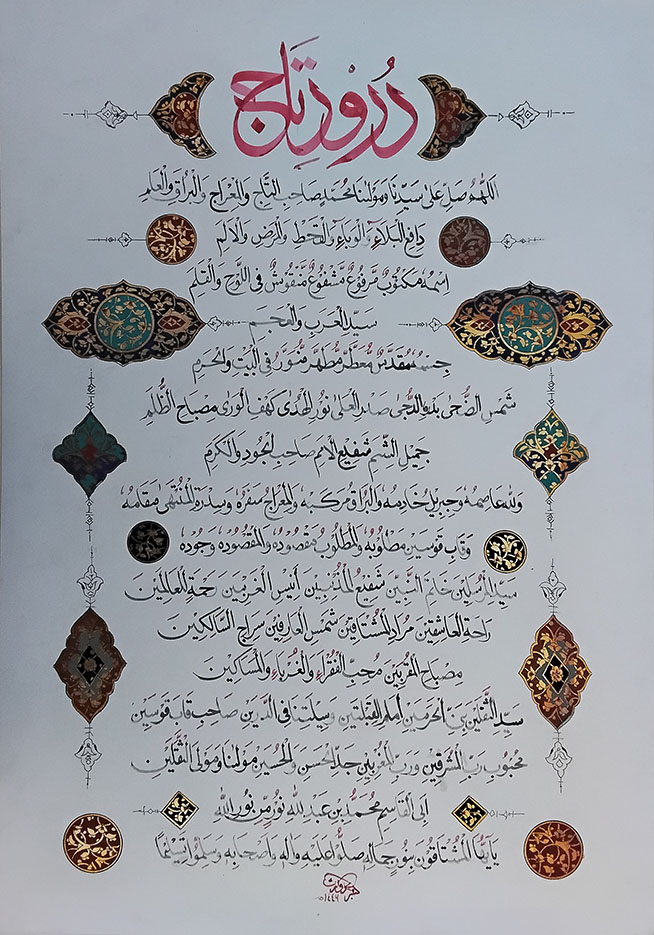 دُرُوْدِ تَاج
اَللّٰهُمَّ صَلِّ عَلٰى سَيِّدِنَا وَمَوْلٰنَا مُحَمَّدٍ صَاحِبِ التَّاجِ وَالْمِعْرَاجِ وَالْبُرَاقِ وَالْعَلَمِ
دَافِعِ الْبَلَاءِ وَالْوَبَاءِ وَالْقَحْطِ وَالْمَرَضِ وَالْاَلَمِ
اِسْمُهٗ مَكْتُوْبٌ مَّرْفُوْعٌ مَّشْفُوْعٌ مَّنْقُوْشٌ فِى اللَّوْحِ وَالْقَلَمِ
سَيِّدِ الْعَرَبِ وَالْعَجَمِ
جِسْمُهٗ مُقَدَّسٌ مُّعَطَّرٌ مُّطَهَّرٌ مُّنَوَّرٌ فِى الْبَيْتِ وَالْحَرَمِ
شَمْسِ الضُّحٰى بَدْرِ الدُّجٰى صَدْرِ الْعُلٰى نُوْرِ الْهُدٰى كَهْفِ الْوَرٰى مِصْبَاحِ الظُّلَمِ
جَمِيْلِ الشِّيَمِ شَفِيْعِ الْاُمَمِ صَاحِبِ الْجُوْدِ وَالْكَرَمِ
وَاللهُ عَاصِمُهٗ وَجِبْرِيْلُ خَادِمُهٗ وَالْبُرَاقُ مَرْكَبُهٗ وَالْمِعْرَاجُ سَفَرُهٗ وَسِدْرَةُ الْمُنْتَهٰى مَقَامُهٗ
وَقَابَ قَوْسَيْنِ مَطْلُوْبُهٗ وَالْمَطْلُوْبُ مَقْصُوْدُهٗ وَالْمَقْصُوْدُ مَوْجُوْدُهٗ
سَيِّدِ الْمُرْسَلِيْنَ خَاتَمِ النَّبِيِّيْنَ شَفِيْعِ الْمُذْنِبِيْنَ اَنِيْسِ الْغَرِيْبِيْنَ رَحْمَةٍ لِّلْعَالَمِيْنَ
رَاحَةِ الْعَاشِقِيْنَ مُرَادِ الْمُشْتَاقِيْنَ شَمْسِ الْعَارِفِيْنَ سِرَاجِ السَّالِكِيْنَ
مِصْبَاحِ الْمُقَرَّبِيْنَ مُحِبِّ الْفُقَرَاءِ وَالْغُرَبَاءِ وَالْمَسَاكِيْنَ
سَيِّدِ الثَّقَلَيْنِ نَبِيِّ الْحَرَمَيْنِ اِمَامِ الْقِبْلَتَيْنِ وَسِيْلَتِنَا فِى الدَّارَيْنِ صَاحِبِ قَابَ قَوْسَيْنِ
مَحْبُوْبِ رَبِّ الْمَشْرِقَيْنِ وَرَبِّ الْمَغْرِبَيْنِ جَدِّ الْحَسَنِ وَالْحُسَيْنِ مَوْلٰنَا وَمَوْلَى الثَّقَلَيْنِ
اَبِى الْقَاسِمِ مُحَمَّدِ بْنِ عَبْدِ اللهِ نُوْرٍ مِّنْ نُّوْرِ اللهِ
يَا اَيُّهَا الْمُشْتَاقُوْنَ بِنُوْرِ جَمَالِهٖ صَلُّوْا عَلَيْهِ وَاٰلِهٖ وَاَصْحَابِهٖ وَسَلِّمُوْا تَسْلِيْمًا
١٤٤٦ه